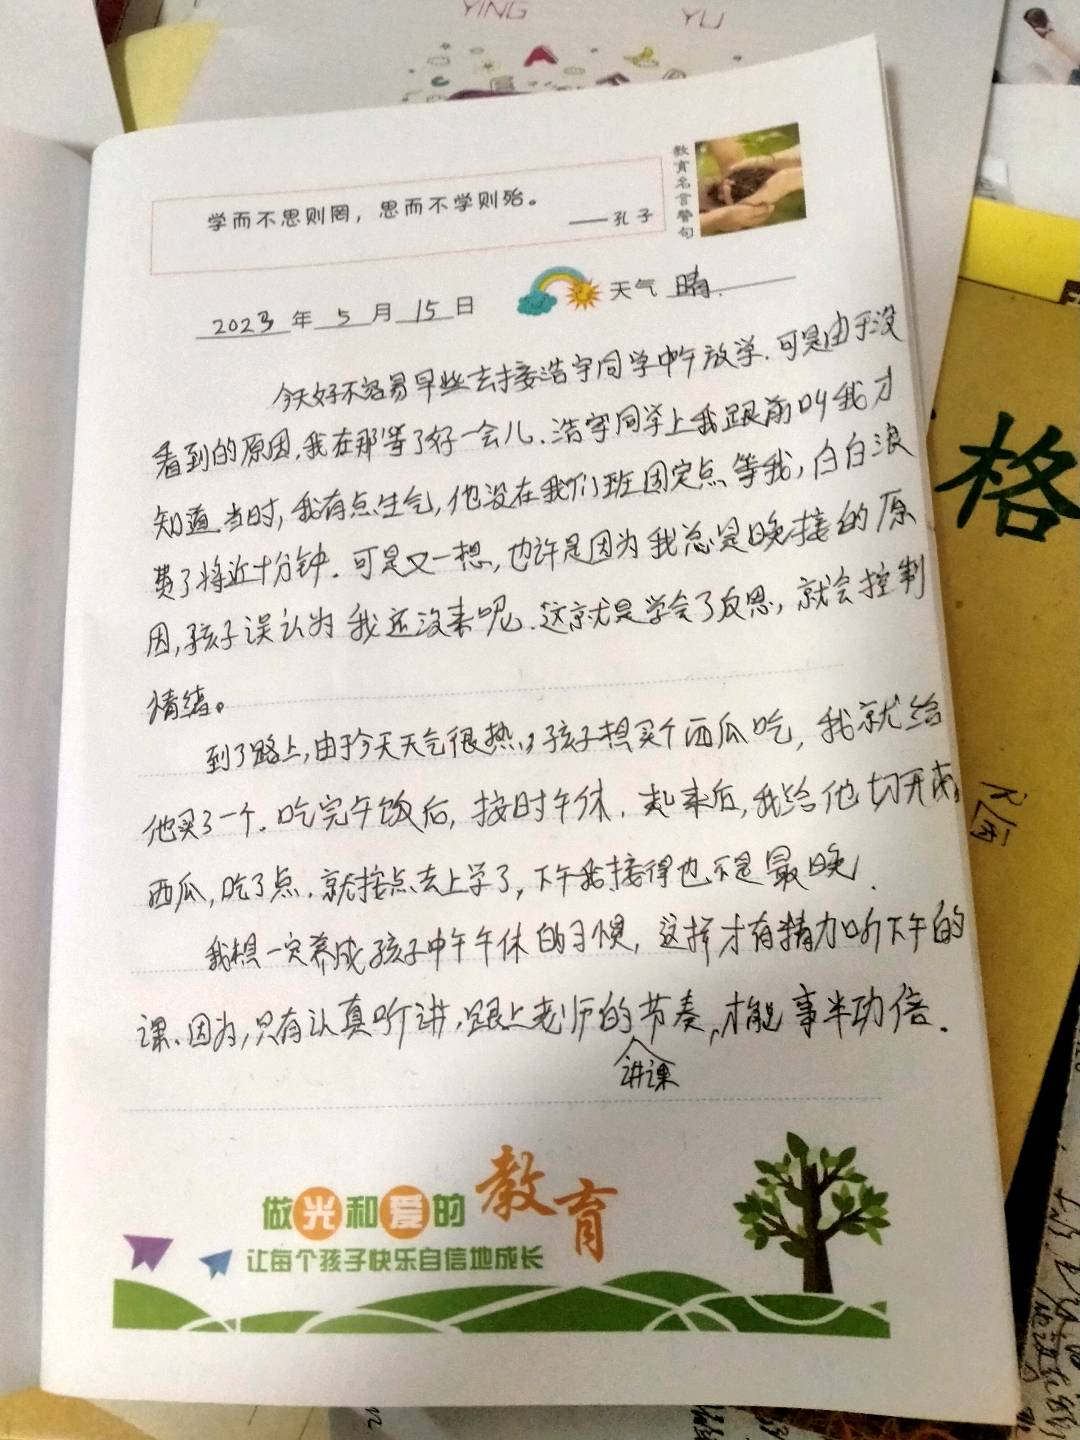 YING YU
学而不思则罔，思而不学则殆。
——孔子
教育名言警句
2023年5月15日
天气 晴.
今天好不容易早些去接浩宇同学中午放学.可是由于没
看到的原因,我在那等了好一会儿.浩宇同学上我跟前叫我才
知道.当时,我有点生气,他没在我们班固定点等我,白白浪
费了将近十分钟.可是又一想,也许是因为我总是晚接的原
因,孩子误认为我还没来呢.这就是学会了反思,就会控制
情绪。
到了路上,由于今天天气很热,孩子想买个西瓜吃,我就给
他买了一个.吃完午饭后,按时午休.起来后,我给他切开
西瓜,吃了点.就按点去上学了,下午我接得也不是最晚.
我想一定养成孩子中午午休的习惯,这样才有精力听下午的
课.因为,只有认真听讲,跟上老师的讲课节奏,才能事半功倍.
做光和爱的教育
让每个孩子快乐自信地成长
格